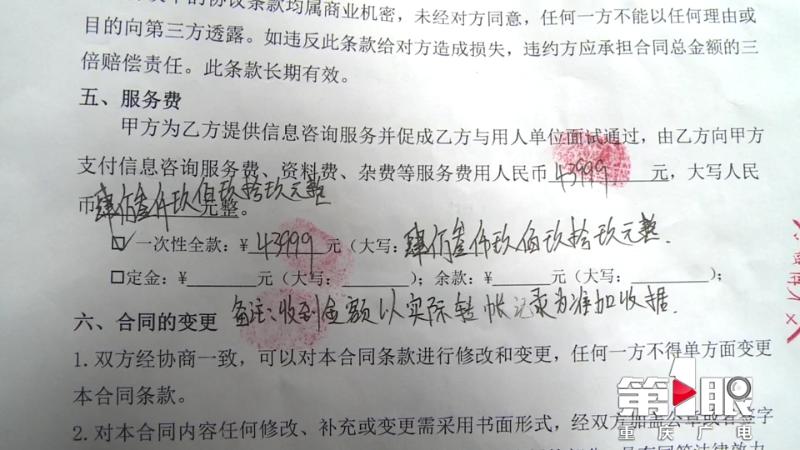 的协议条款均属商业机密，未经对方同意，任何一方不能以任何理由或
目的向第三方透露。如违反此条款给对方造成损失，违约方应承担合同总金额的三
倍赔偿责任。此条款长期有效。
五、服务费
甲方为乙方提供信息咨询服务并促成乙方与用人单位面试通过，由乙方向甲方
支付信息咨询服务费、资料费、杂费等服务费用人民币 43999 元，大写人民
币 玖佰玖拾玖元整 元整。
☑一次性全款：¥ 43999 元（大写： 玖佰玖拾玖元整.
□定金：¥ 元（大写： ）；余款：¥ 元（大写： ）；
六、合同的变更 备注：收到金额以实际转帐记录为准加收据.
1.双方经协商一致，可以对本合同条款进行修改和变更，任何一方不得单方面变更
本合同条款。
2.对本合同内容任何修改、补充或变更需采用书面形式，经双方加盖公章或者签字
第1眼
重庆广电